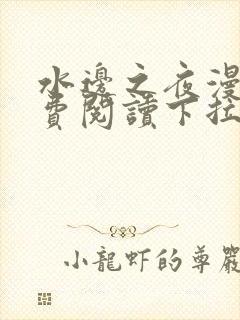 水邊之夜漫
費閱讀下拉
小龍虾的尊嚴